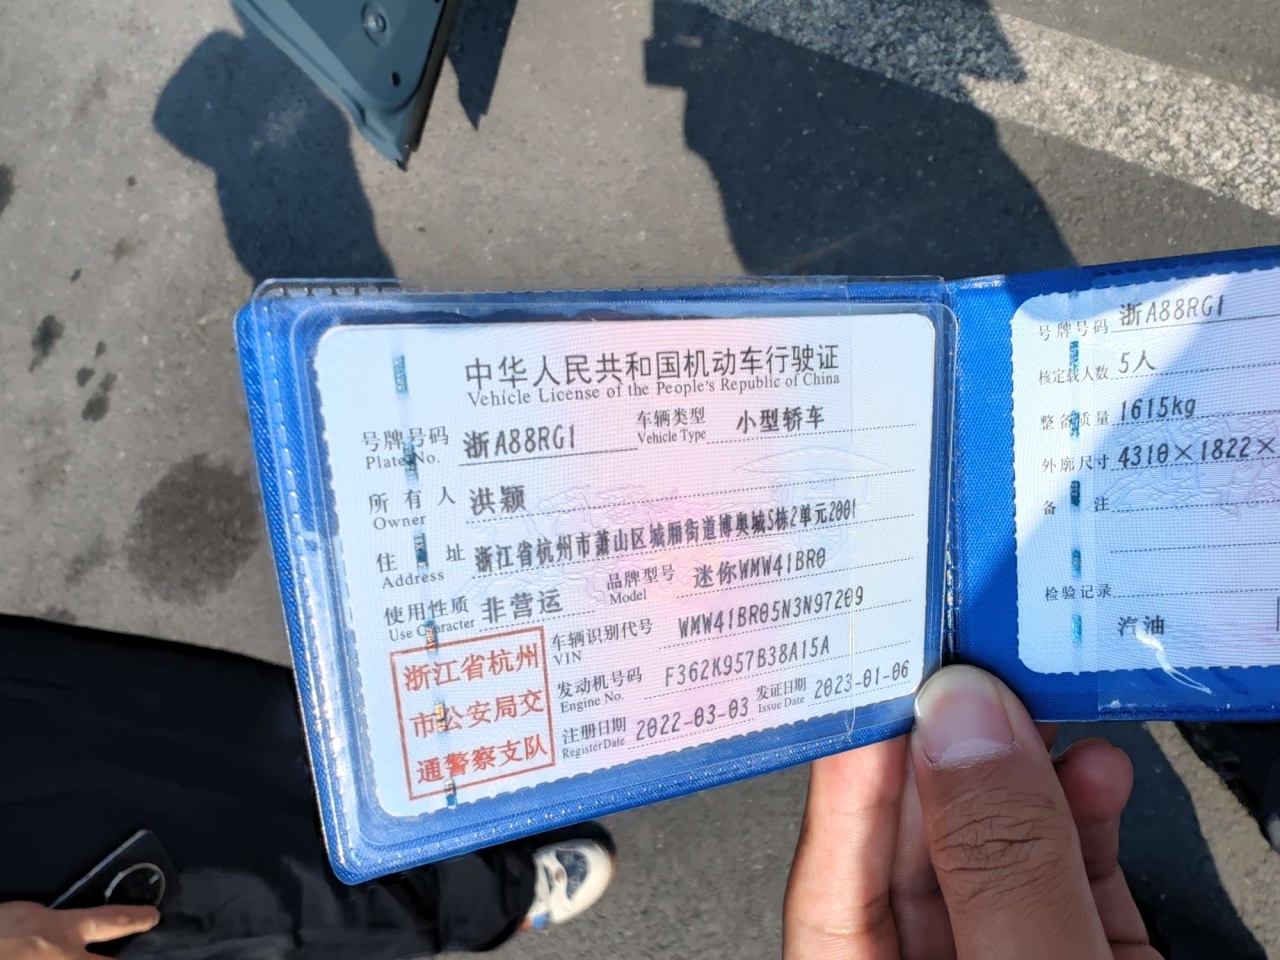 中华人民共和国机动车行驶证
Vehicle License of the People's Republic of China
号牌号码 浙A88RG1 车辆类型 小型轿车
Plate No. Vehicle Type
所有人 洪颖
Owner
住址 浙江省杭州市萧山区城厢街道博奥城5栋2单元2001
Address
使用性质 非营运 品牌型号 迷你WMW41BR0
Use Character Model
车辆识别代号 WMW41BR05N3N97209
VIN
发动机号码 F362K957B38A15A
Engine No.
注册日期 2022-03-03 发证日期 2023-01-06
Register Date Issue Date
浙江省杭州
市公安局交
通警察支队
号牌号码 浙A88RG1
核定载人数 5人
整备质量 1615kg
外廓尺寸 4310×1822×
备注
检验记录
汽油